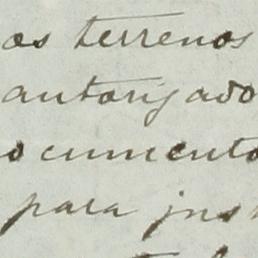 os terrenos
autorizado
ocumento
para jus